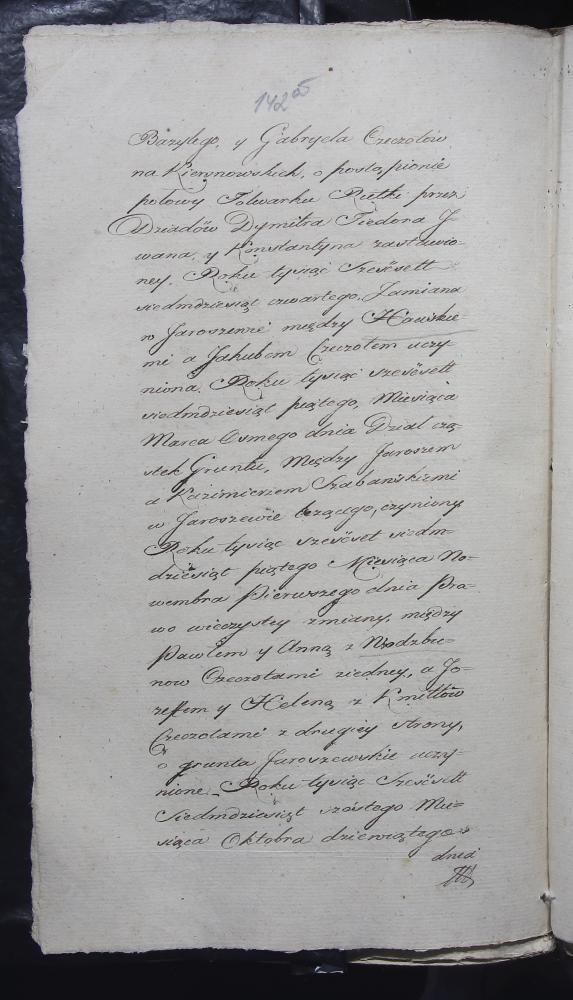 142
Bazylego, y Gabryela Czeczotów
na Kierznowskich, o postąpienie
połowy Folwarku Rutki przez
Dziadów Dymitra Fiedora J-
wana, y Konstantyna zastawio-
ney. Roku tysiąc szescsett
siedmdziesiąt czwartego. Zamiana
w Jaroszewie między Hański-
mi a Jakubem Czeczotem uczy-
niona. Roku tysiąc szescsett
siedmdziesiąt piątego, Miesiąca
Marca Osmego dnia Dział czą-
stek Gruntu, Między Jaroszem
a Kazimierzem Szabańskiemi
w Jaroszewie leżącego, czyniony
Roku tysiąc szescset siedm-
dziesiąt piątego Miesiąca No-
wembra Pierwszego dnia Pra-
wo wieczystey zmiany, między
Pawłem y Anną z Niedzbu-
now Czeczotami ziedney, a Jo-
zeffem y Heleną z Kmittów
Czeczotami z drugiey strony,
o grunta Jaroszewskie uczy-
nione. Roku tysiąc szescsett
Siedmdziesiąt szóstego Mie-
siąca Oktobra dziewiątego
dnia